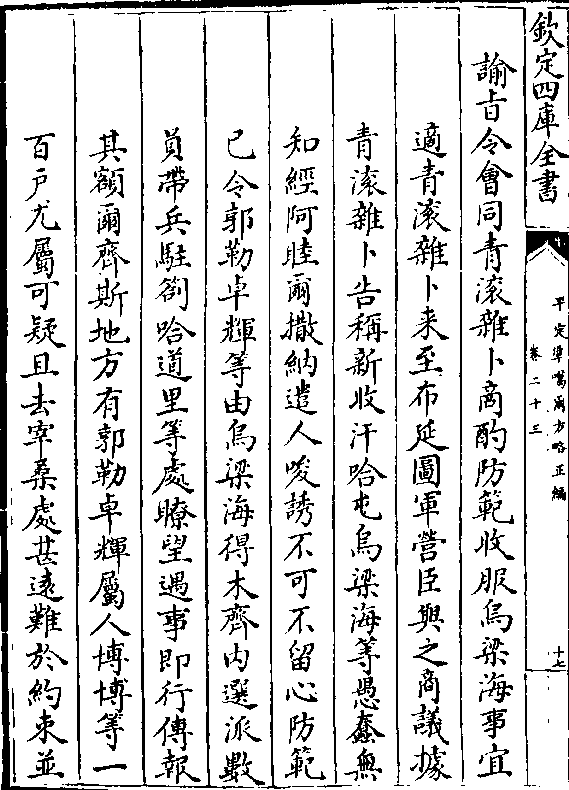 欽定四庫全書
平定準噶爾方略正編
卷二十三
十七
諭旨令會同青滾雜卜商酌防範收服烏梁海事宜
適青滾雜卜来至布延圖軍營臣與之商議據
青滾雜卜告稱新收汗哈屯烏梁海等愚蠢無
知經阿睦爾撒納遣人唆誘不可不留心防範
已令郭勒卓輝等由烏梁海得木齊内選派數
員帶兵駐劄哈道里等處瞭望遇事即行傳報
其額爾齊斯地方有郭勒卓輝屬人博博等一
百戶尤屬可疑且去宰桑處甚遠難於約束並